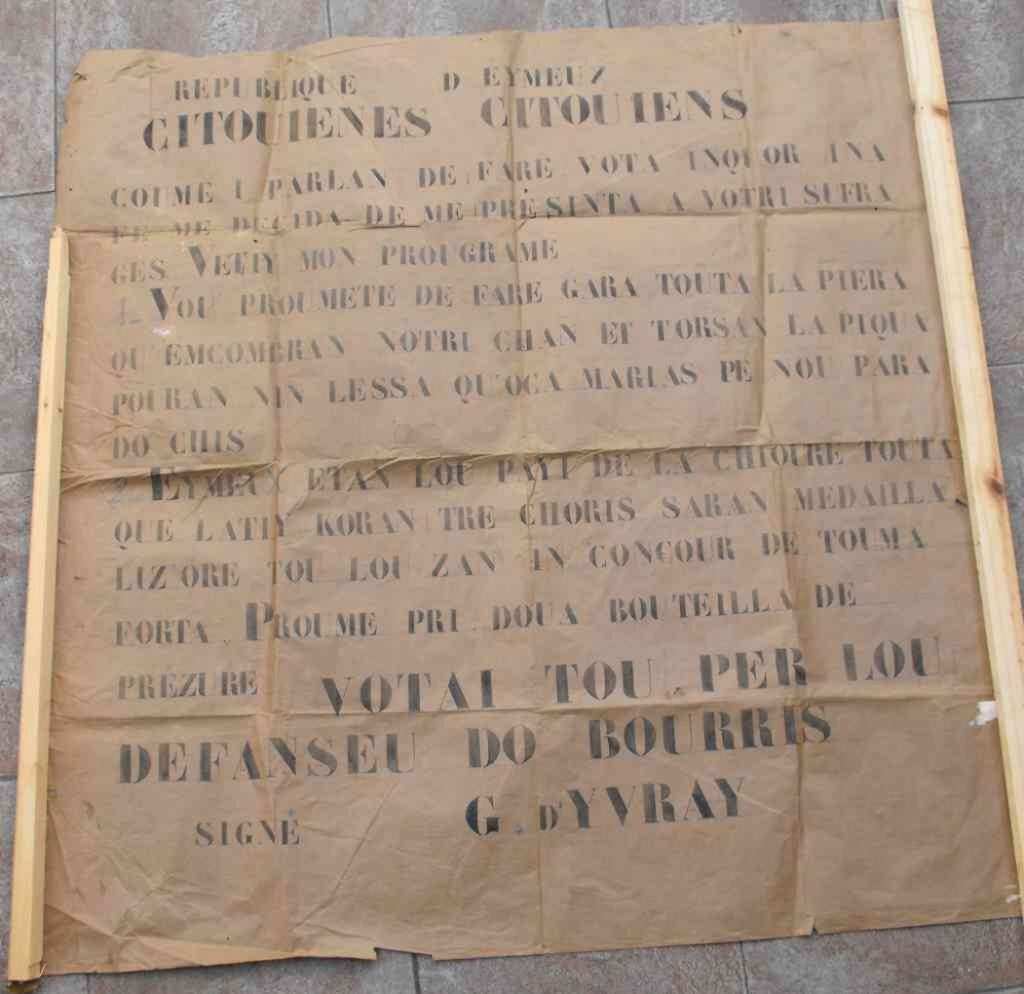 REPUBLIQUE D EYMEUX
CITOUIENES CITOUIENS
COUME I PARLAN DE FARE VOTA INQUOR INA
ME DECIDA DE ME PRESINTA A VOTRI SUFRA
GES VETIY MON PROUGRAME
1_ VOU PROUMETE DE FARE GARA TOUTA LA PIERA
QU EMCOMBRAN NOTRI CHAN ET TORSAN LA PIQUA
POURAN NIN LESSA QU'OCA MARIAS PE NOU PARA
DO CHIS
2_ EYMEUX ETAN LOU PAYI DE LA CHIOURE TOUTA
QUE LATIY KORAN TRE CHORIS SARAN MEDAILLA
LIZ'ORE TOU LOU ZAN IN CONCOUR DE TOUMA
FORTA. PROUME PRI. DOUA BOUTEILLA DE
PREZURE VOTAI TOU PER LOU
DEFANSEU DO BOURRIS
SIGNÉ G. D'YVRAY